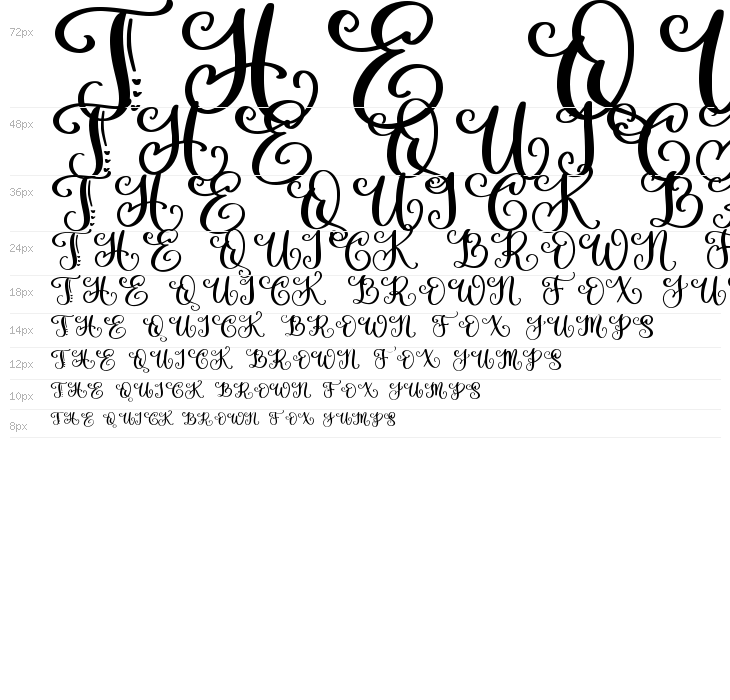 72px THE QU
48px THE QUIC
36px THE QUICK B
24px THE QUICK BROWN F
18px THE QUICK BROWN FOX JU
14px THE QUICK BROWN FOX JUMPS
12px THE QUICK BROWN FOX JUMPS
10px THE QUICK BROWN FOX JUMPS
8px THE QUICK BROWN FOX JUMPS